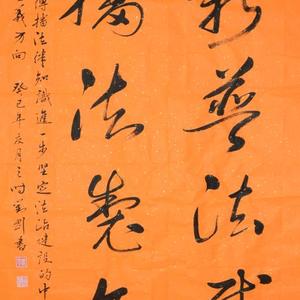 新普法
播法製
傳播法律知識進一步坚定法治建設的中
義方向 癸巳年夏月之时劉